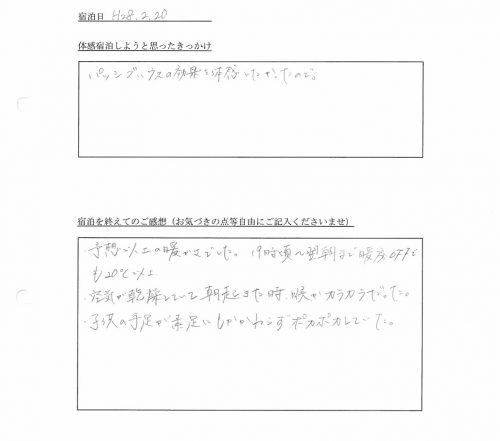 宿泊日 H28.2.20
体感宿泊しようと思ったきっかけ
パッシブハウスの効果を体感したかったので。
宿泊を終えてのご感想（お気づきの点等自由にご記入くださいませ）
・予想以上の暖かさでした。19時頃〜翌朝まで暖房OFFで
も20℃以上
・空気が乾燥していて朝起きた時、喉がカラカラだった。
・子供の手足が素足にもかかわらずポカポカしていた。